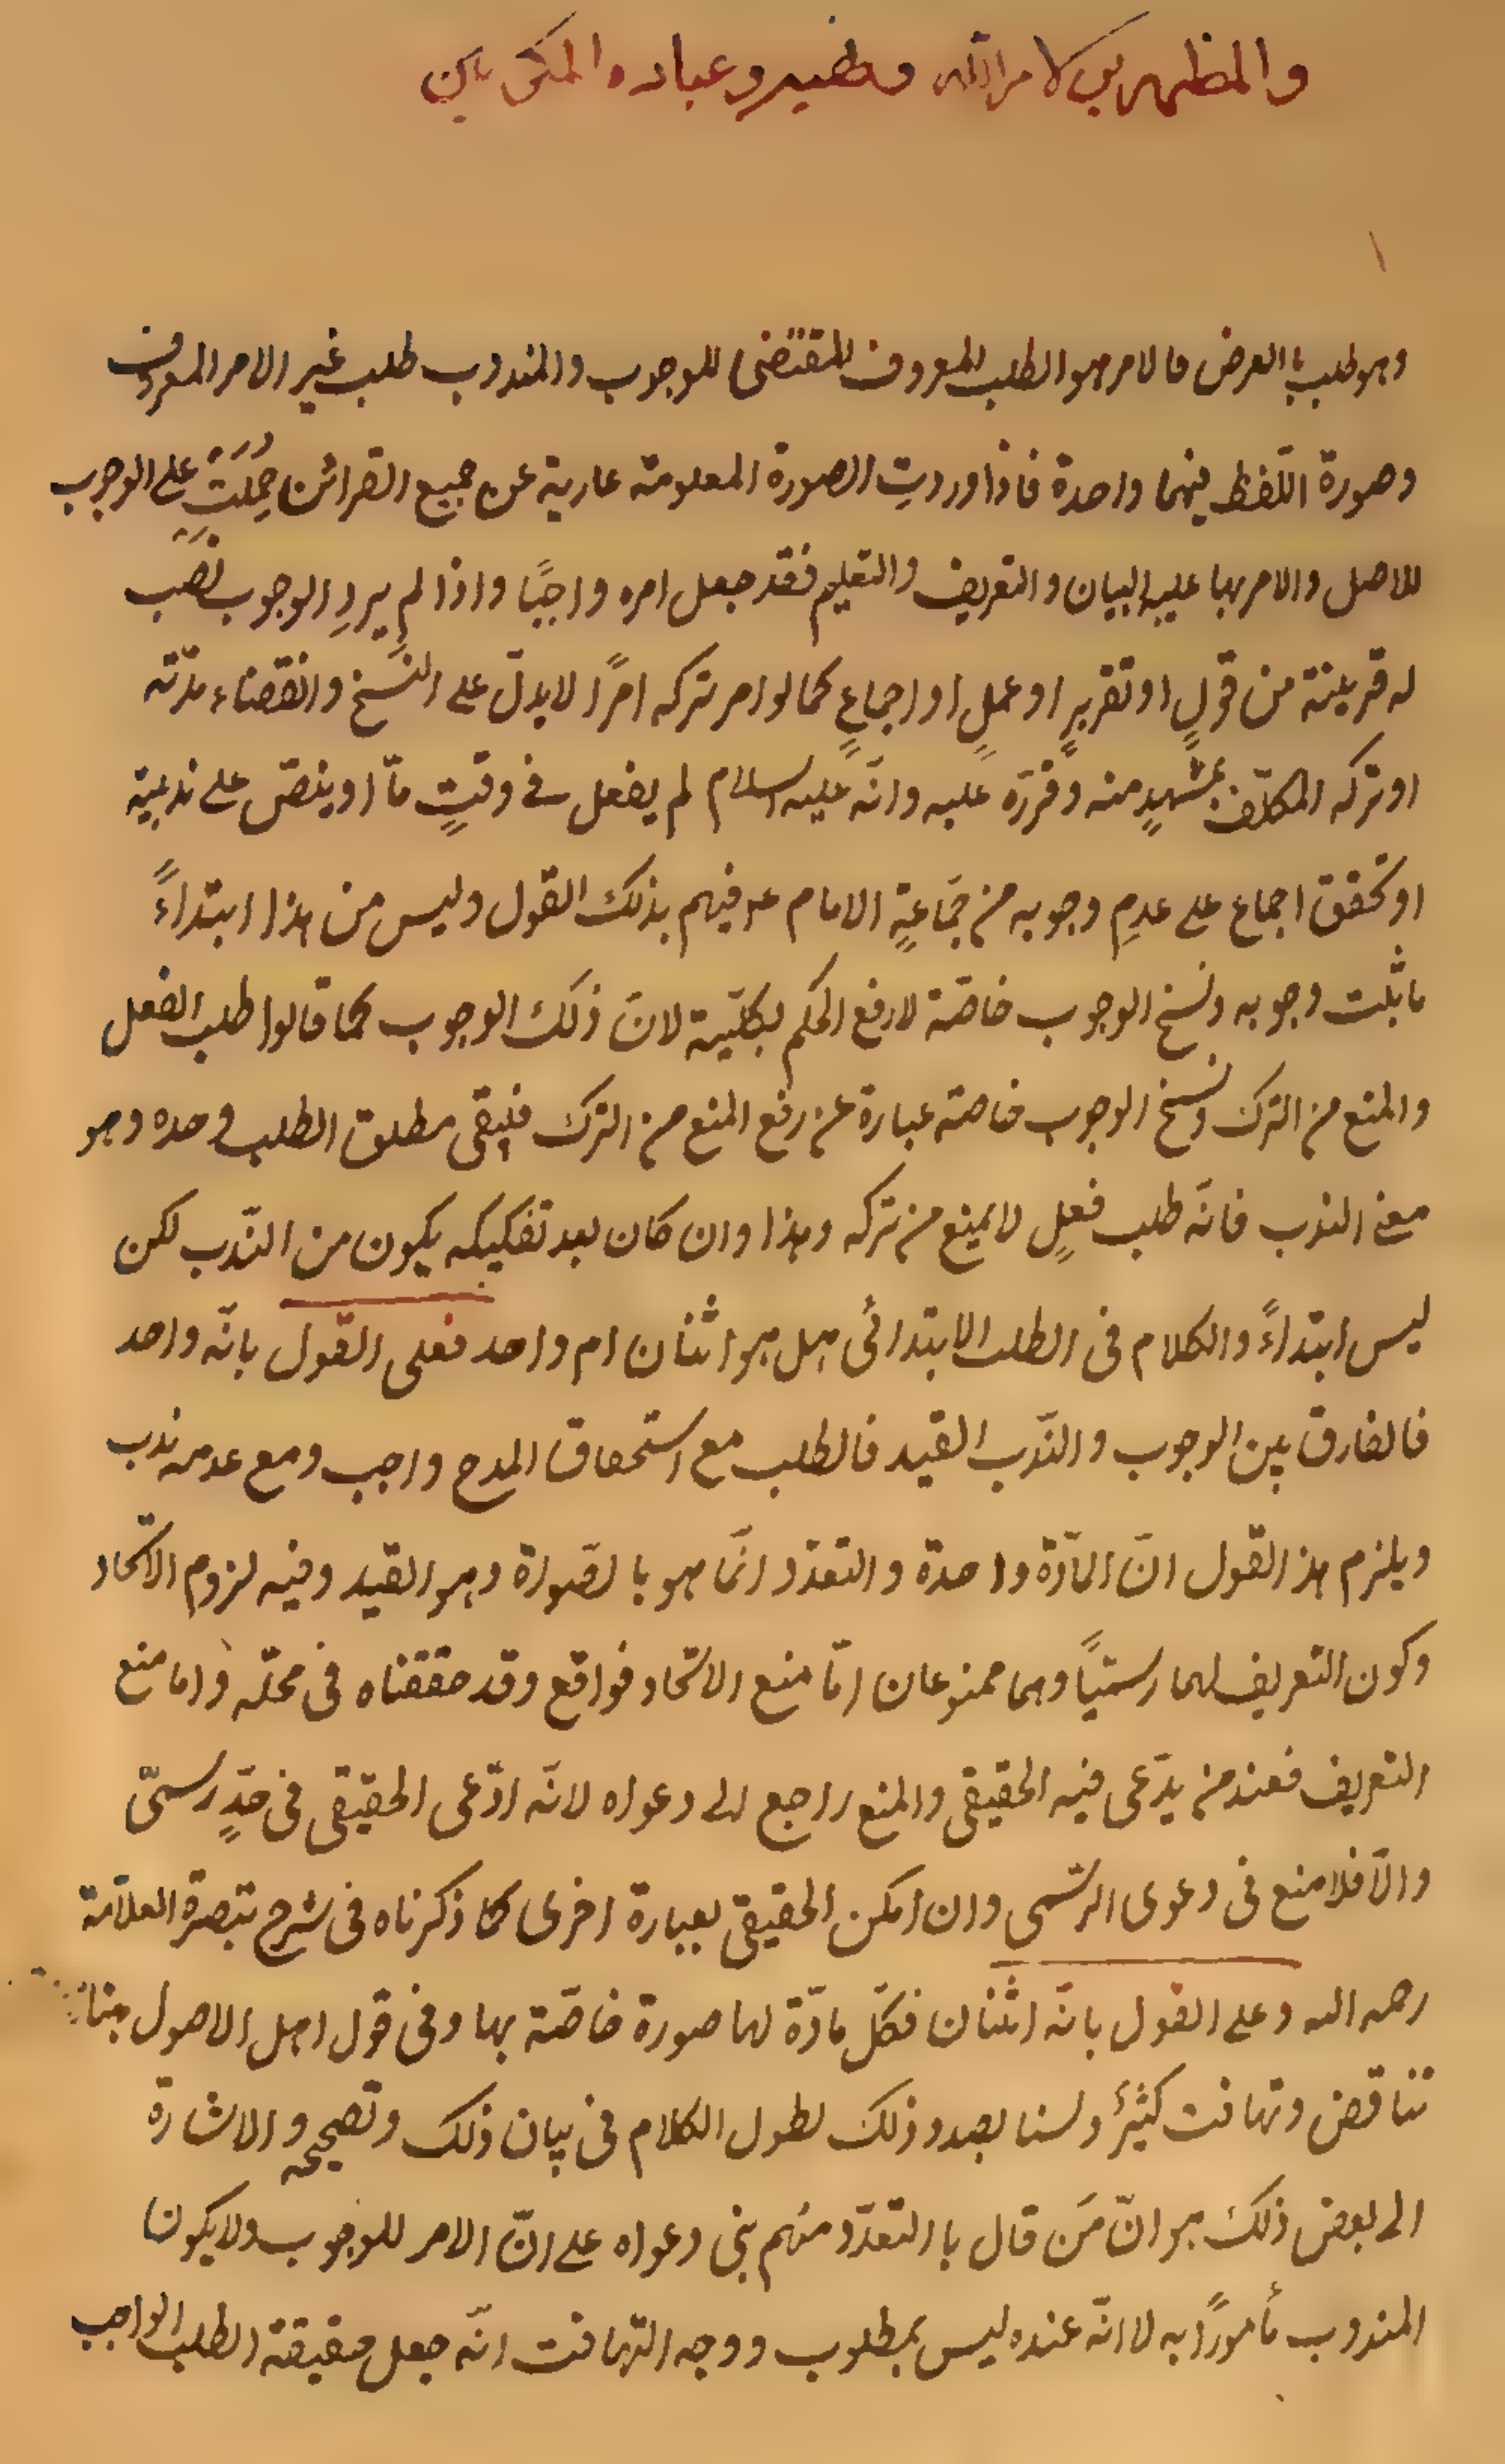 والمظهرين لامر الله ونهيه وعباده المكرمين
١
وهو طلب بالعرض فالامر هو الطلب المعروف المقتضى للوجوب والمندوب طلب غير الامر المعروف
وصورة اللّفظ فيهما واحدة فاذا وردت الصورة المعلومة عارية عن جميع القرائن حُمِلَتْ على الوجوب
للاصل والامر بها عليه البيان والتعريف والتعليم فقد جعل امره واجبًا واذا لم يردِ الوجوب نصَبَ
له قرينة من قولٍ او تقريرٍ او عملٍ او اجماعٍ كما لو امر بتركه امرًا لا يدلّ على النَّسخ وانقضاء مدّته
او تركه المكلّف بمشهدٍ منه وقرّرَه عليه وانّه عليه السلام لم يفعل فى وقتٍ مّا او ينصّ على ندبيّة
او تحقق اجماع على عدمِ وجوبه من جَمَاعةٍ الامام ع فيهم بذلك القول وليس من هذا ابتداءً
ما ثبت وجوبه ونسخ الوجوب خاصّة لا رفع الحكم بكليّة لانّ ذلك الوجوب كما قالوا طلب الفعل
والمنع من الترك ونسخ الوجوب خاصة عبارة عن رفع المنع من الترك فيبقى مطلق الطلب وحده وهو
معنى الندب فانّه طلب فعلٍ لا يمنع من تركه وهذا وان كان بعد تفكيكه يكون من النّدب لكن
ليس ابتداءً والكلام فى الطلب الابتدائى هل هو اثنان ام واحد فعلى القول بانّه واحد
فالفارق بين الوجوب والنّدب القيد فالطلب مع استحقاق المدح واجب ومع عدمه ندب
ويلزم هذ القول انّ المادّة واحدة والتعدّد انّما هو بالصّورة وهو القيد وفيه لزوم الاتّحاد
وكون التعريف لهما رسميًّا وهما ممنوعان امّا منع الاتّحاد فواقع وقد حققناه فى محلّه وامّا منع
التعريف فعند من يدّعى فيه الحقيقى والمنع راجع الى دعواه لانّه ادّعى الحقيقى فى حدٍّ رسمىّ
والّا فلا منع فى دعوى الرّسمى وان امكن الحقيقى بعبارة اخرى كما ذكرناه فى شرح تبصرة العلّامة
رحمه الله وعلى القول بانّه اثنان فكلّ مادّة لها صورة خاصّة بها وفى قول اهل الاصول هنا
تناقض وتهافت كثيرٌ ولسنا بصدد ذلك لطول الكلام فى بيان ذلك وتصحيحه والاشارة
الى بعض ذلك هو انّ مَن قال با التعدّد منهم بنى دعواه على انّ الامر للوجوب ولا يكون
المندوب مأمورًا به لا انّه عنده ليس بمطلوب ووجه التهافت انّه جعل حقيقة الطلب الواجب